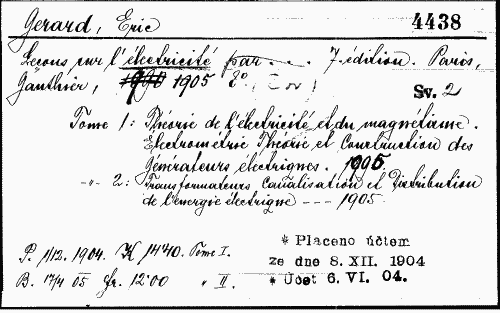 Gerard, Eric 4438
Leçons sur l'électricité par .... 7-édition. Paris,
Gauthier, 1905 8°.
Sv. 2
Tome 1: Théorie de l'électricité et du magnétisme.
Electrométrie Théorie et Construction des
Générateurs électriques. 1905
-"- 2: Transformateurs Canalisation et Distribution
de l'énergie électrique --- 1905.
P. 1/12. 1904. K 14'40. Tome I.
B. 17/4 05 fr. 12'00 " II.
* Placeno účtem
ze dne 8. XII. 1904
* Účet 6. VI. 04.